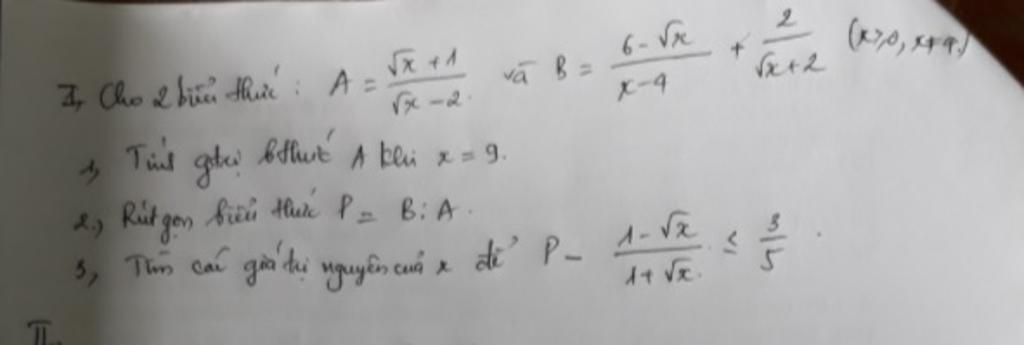 I, Cho 2 biểu thức : A = \frac{\sqrt{x}+1}{\sqrt{x}-2} và B = \frac{6-\sqrt{x}}{x-4} + \frac{2}{\sqrt{x}+2} (x≥0, x≠4)
1, Tính gtrị bthức A khi x = 9.
2., Rút gọn biểu thức P = B : A .
3, Tìm các giá trị nguyên của x để P - \frac{1-\sqrt{x}}{1+\sqrt{x}} ≤ \frac{3}{5} .
II.